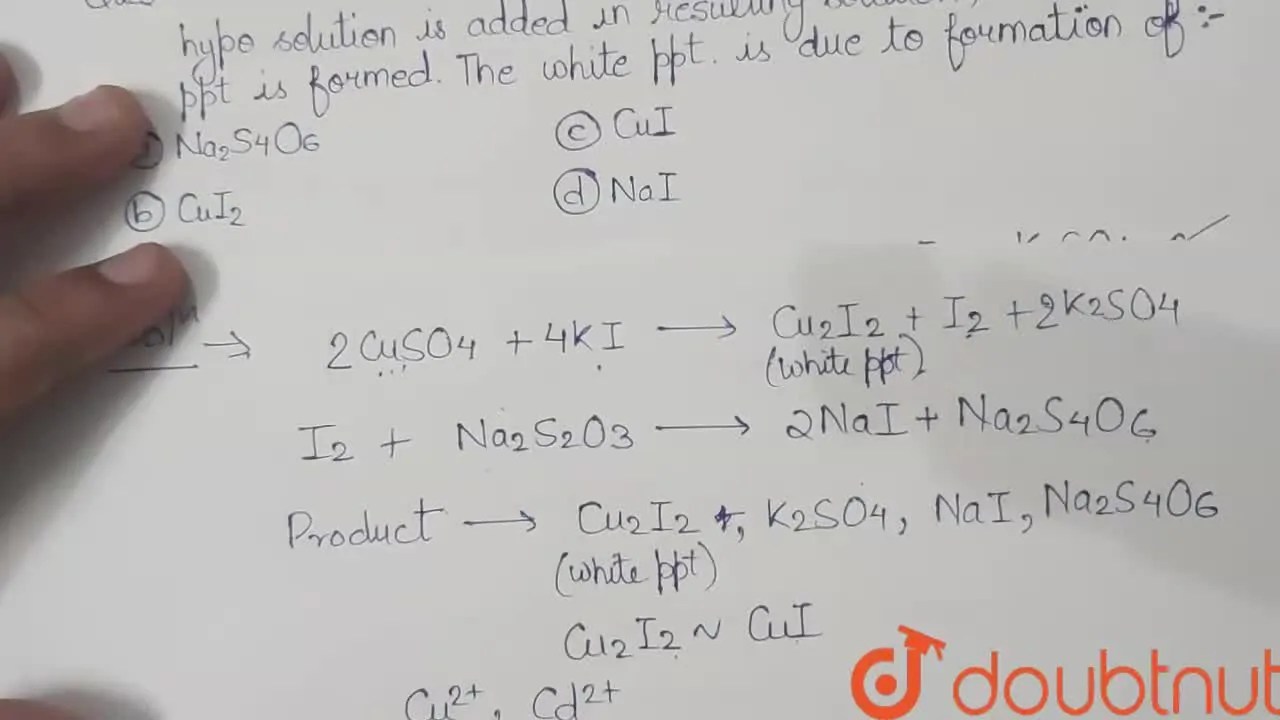 hypo solution is added in resulting
ppt is formed. The white ppt. is due to formation of :-
Na2S4O6
(c) CuI
(b) CuI2
(d) NaI
→ 2CuSO4 + 4KI → Cu2I2 + I2 + 2K2SO4
(white ppt)
I2 + Na2S2O3 → 2NaI + Na2S4O6
Product → Cu2I2 , K2SO4, NaI, Na2S4O6
(white ppt)
Cu2I2 ~ CuI
Cu2+, Cd2+
doubtnut